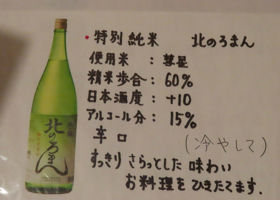 ・特別純米　北のろまん
使用米：彗星
精米歩合：60%
日本酒度：+10
アルコール分：15%
辛口　(冷やして)
すっきり さらっとした 味わい
お料理を ひきたてます。
北のろまん